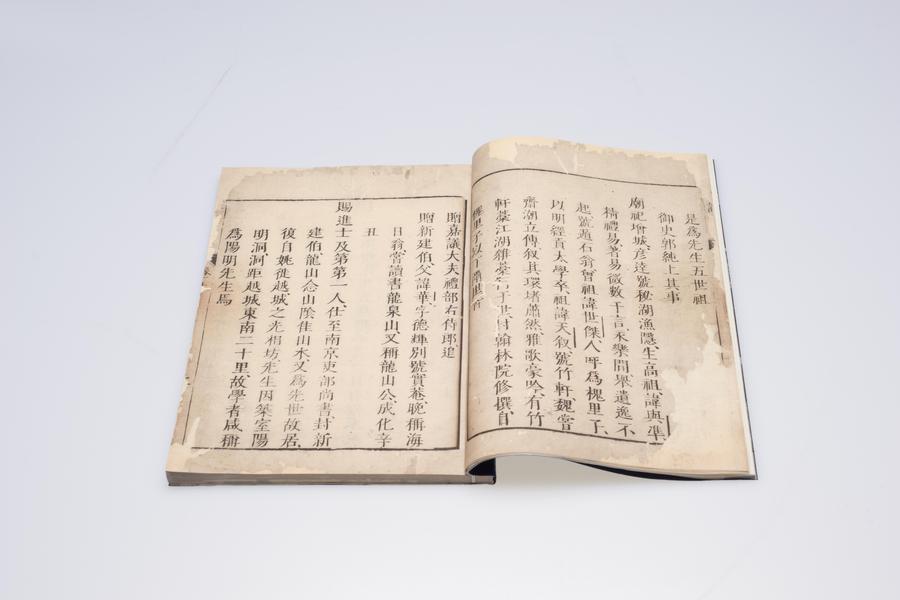 是為先生五世祖
御史郭純上其事
廟祀增城彥達號秘湖漁隱生高祖諱與準
精禮易著易微數千言永樂間舉遺逸不
起號遁石翁曾祖諱世傑人呼為槐里子
以明經貢太學卒祖諱天叙號竹軒魏嘗
齋瀚立傳叙其環堵蕭然雅歌豪吟有竹
軒藁江湖雜藁行于世封翰林院修撰自
槐里子以下兩世皆
贈嘉議大夫禮部右侍郎追
贈新建伯父諱華字德輝別號實菴晚稱海
日翁嘗讀書龍泉山又稱龍山公成化辛
丑
賜進士及第第一人仕至南京吏部尚書封新
建伯龍山念山陰佳山水又為先世故居
復自姚徙越城之光相坊先生因築室陽
明洞洞距越城東南二十里故學者咸稱
為陽明先生焉